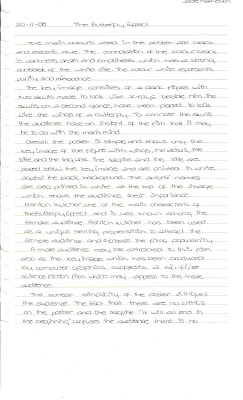 20-11-08 The Butterfly Effect
The main colours used in the poster are black
and electric blue. The connotation of the colour black
is darkness, death and emptiness which has a strong
contrast of the white title. The colour white represents
purity and innocence.
The key image consists of a dark figure with
two skulls made to look like x-rays beside him. The
skulls, on a second glance, have been placed to look
like the wings of a butterfly. To connote the skulls
the audience have an insight of the film that it may
be to do with the man's mind.
Overall the poster is simple and shows only the
key image of the figure with wings, the actors, the
title and the tagline. The tagline and the title are
placed below the key image and are printed in white
against the black background. The actors' names
are also printed in white at the top of the image
which shows the audience their importance.
Ashton Kutcher, one of the main characters of
The Butterfly Effect and is well known among the
female audience. Ashton Kutcher has been used
as a unique selling proposition to attract the
female audience and increase the films popularity.
A male audience may be attracted to this film
also as the key image which has been produced
by computer graphics suggests a sci-fi/
science fiction film which may appeal to the male
audience.
The sincere simplicity of the poster intrigues
the audience. The fact that there are no critics
on the poster and the tagline "It will all end in
the beginning" confuse the audience. There is no